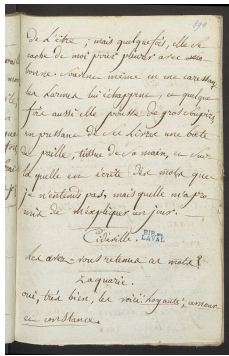 de l'être; mais quelquefois, elle se
cache de moi pour pleurer avec
bonne. Souvent même en me caressant
les larmes lui échappent, et quelque
fois aussi elle pousse de gros soupirs,
en pressant de ses lèvres une boete
de paille, tissue de sa main, et sur
laquelle est écrite des mots que
je n'entends pas, mais qu'elle m'a pro
mis de m'expliquer un jour.
Cideville.
BIB. LAVAL
Les avez-vous retenus ces mots?
Zaquarie.
oui, très bien, les voici: loyauté, amour
et constance.